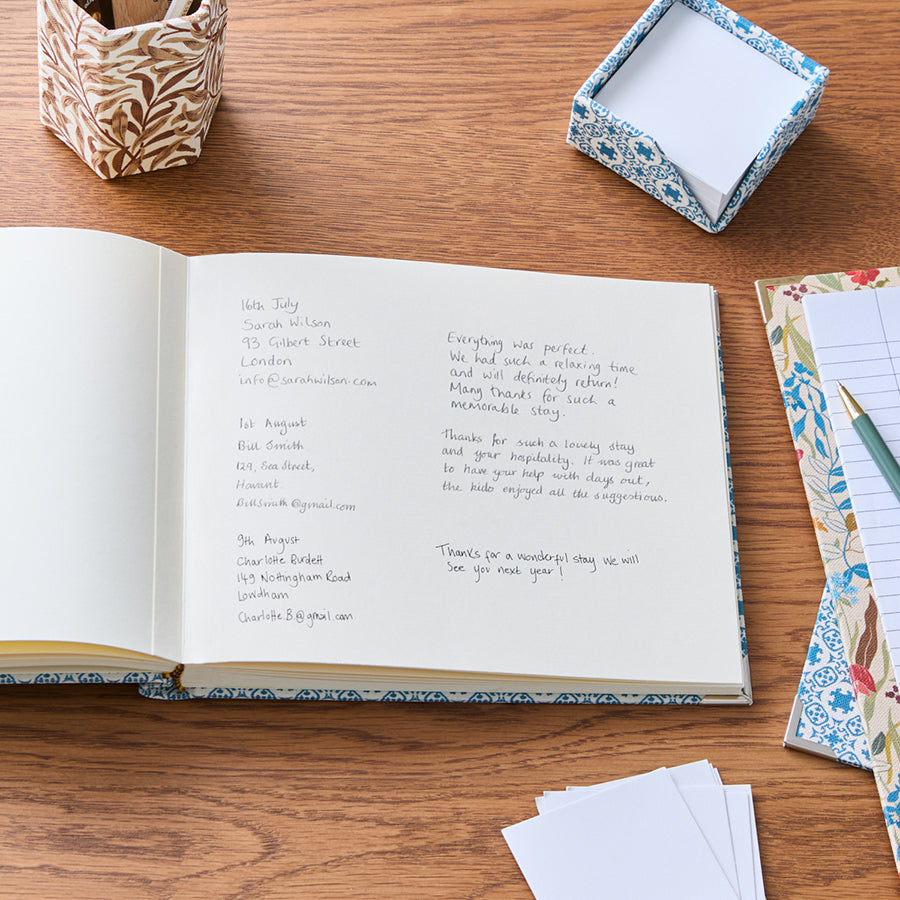 16th July
Sarah Wilson
93 Gilbert Street
London
info@sarahwilson.com
Everything was perfect.
We had such a relaxing time
and will definitely return!
Many thanks for such a
memorable stay.
1st August
Bill Smith
129, Sea Street,
Havant.
Billsmith@gmail.com
Thanks for such a lovely stay
and your hospitality. It was great
to have your help with days out,
the kids enjoyed all the suggestions.
9th August
Charlotte Burdett
149 Nottingham Road
Lowdham
Charlotte.B.@gmail.com
Thanks for a wonderful stay we will
see you next year!